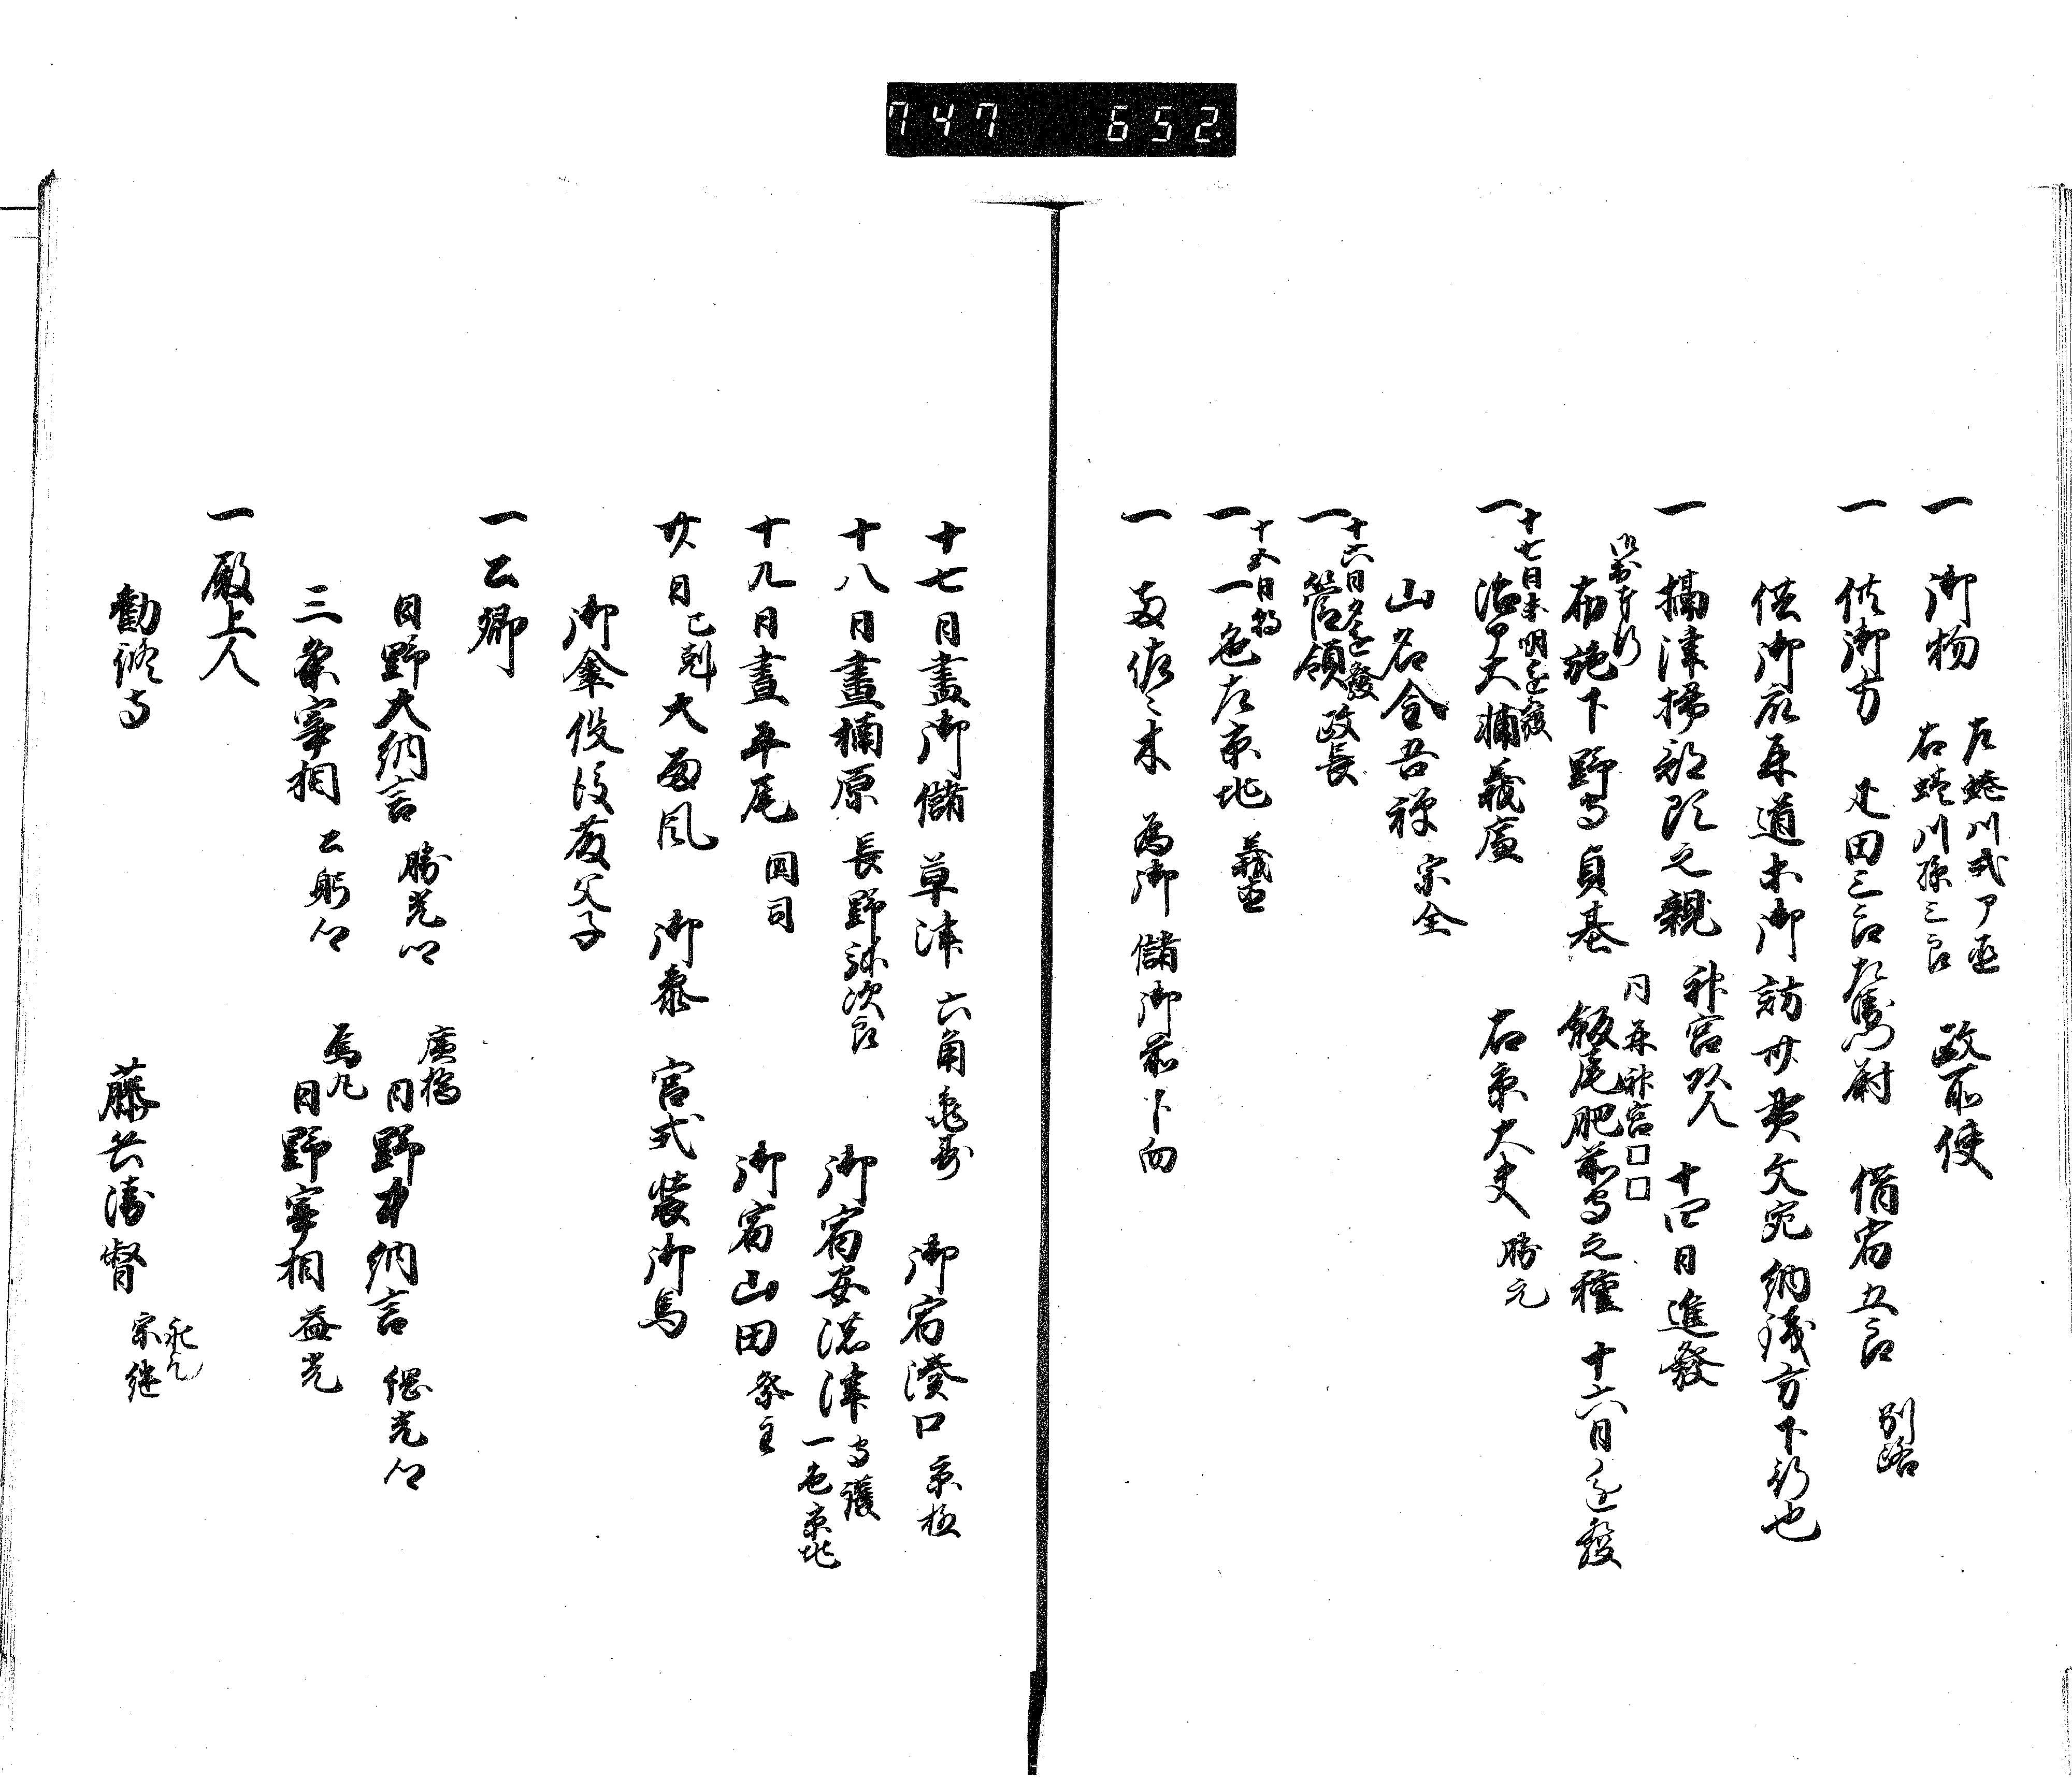 747 652.
一 御物 左蜷川式ア丞 政所使
右蜷川孫三郎
一 供御方 疋田三郎左衛門尉 借宿五郎 別路
供御所并道木御訪廿貫文宛納銭方下行也
一 摂津掃部頭之親 神宮 十四日進發
布施下野守貞基 飯尾肥前守之種 十六日進發
同 并神宮□□
十七日未明進發
一 治ア大輔義廉 右京大夫 勝元
山名金吾禅 宗全
十六日 進發
一 管領 政長
十五日
一 一色左京兆 義直
一 両佐々木 為御儲御前下向
十七日晝御儲 草津 六角亀寿 御宿湊口 京極
十八日晝楠原 長野弥次郎 御宿安濃津 守護
一色京兆
十九日晝平尾 国司 御宿山田 祭主
廿日 巳剋大雨風 御参宮式装御馬
御傘役後藤父子
一 公卿
日野大納言 勝光卿 廣橋
日野中納言 綱光卿
三条宰相 公躬卿 烏丸
日野宰相 益光
一 殿上人
勧修寺 藤兵衛督 永
宗継